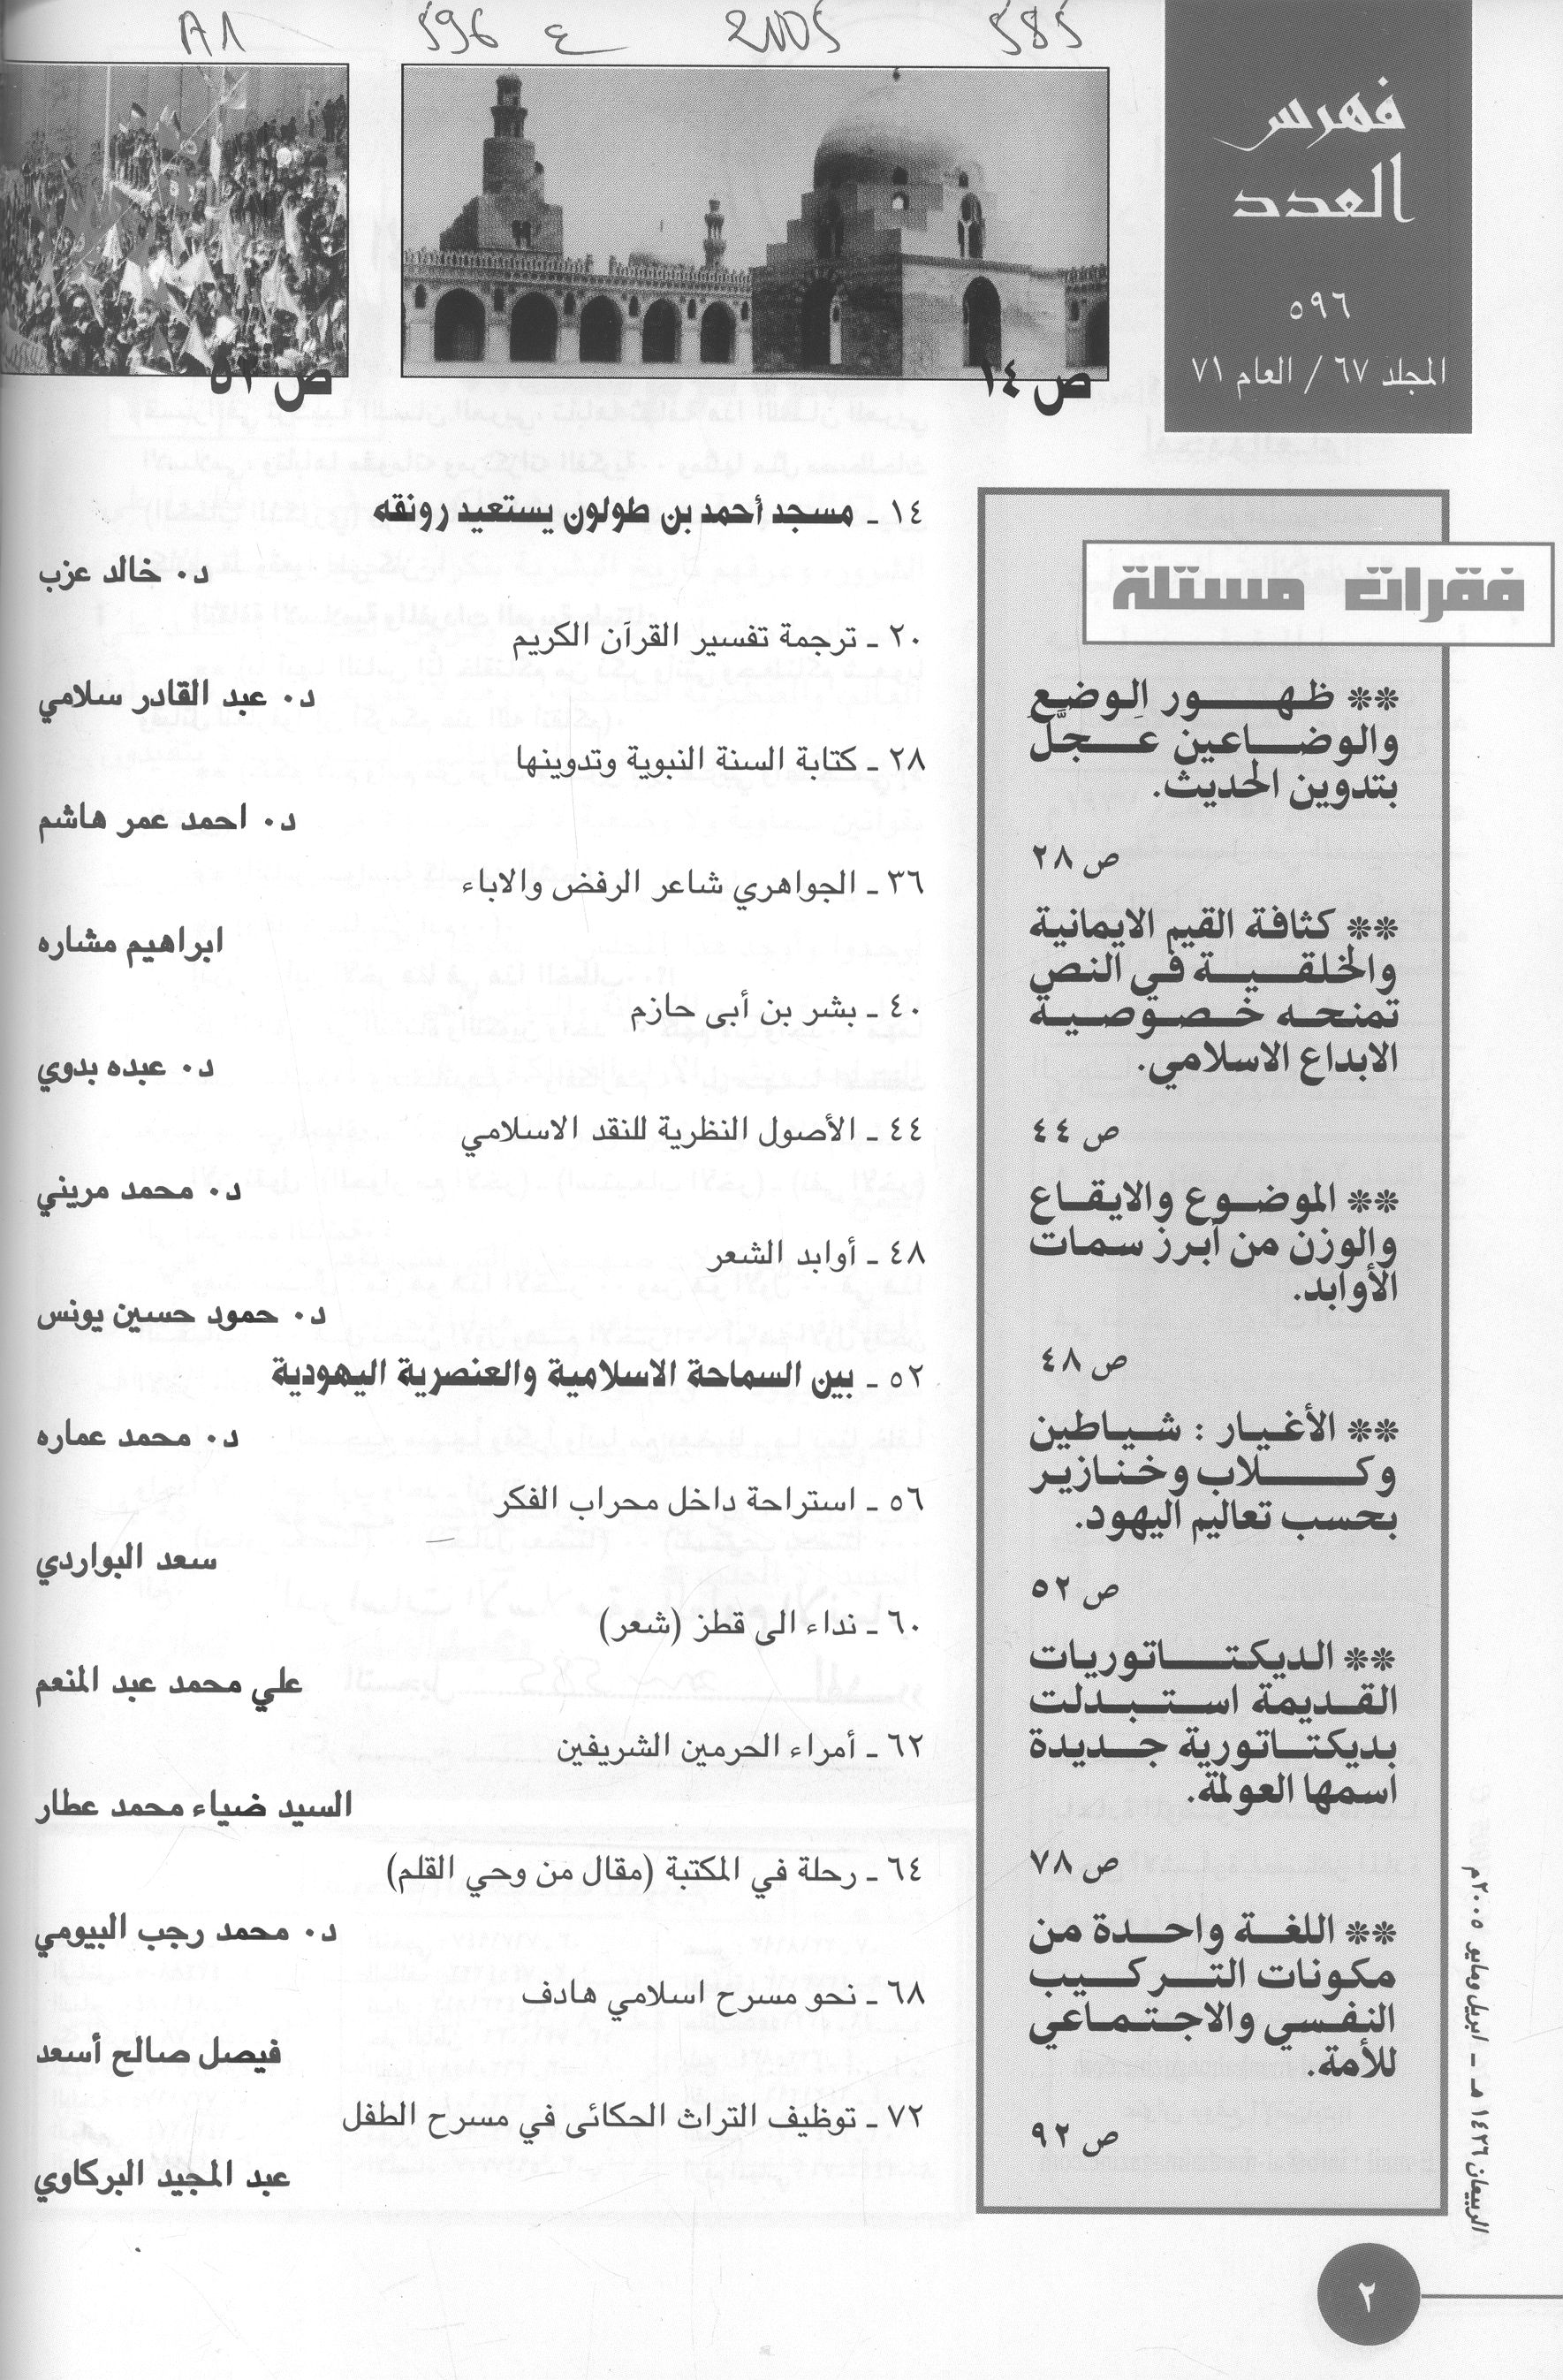 A1 596 ع 2005 585
فهرس
العدد
٥٩٦
المجلد ٦٧ / العام ٧١
ص ١٤
ص ٥٢
١٤ ـ مسجد أحمد بن طولون يستعيد رونقه
د. خالد عزب
٢٠ ـ ترجمة تفسير القرآن الكريم
د. عبد القادر سلامي
٢٨ ـ كتابة السنة النبوية وتدوينها
د. احمد عمر هاشم
٣٦ ـ الجواهري شاعر الرفض والاباء
ابراهيم مشاره
٤٠ ـ بشر بن أبى حازم
د. عبده بدوي
٤٤ ـ الأصول النظرية للنقد الاسلامي
د. محمد مريني
٤٨ ـ أوابد الشعر
د. حمود حسين يونس
٥٢ ـ بين السماحة الاسلامية والعنصرية اليهودية
د. محمد عماره
٥٦ ـ استراحة داخل محراب الفكر
سعد البواردي
٦٠ ـ نداء الى قطز (شعر)
علي محمد عبد المنعم
٦٢ ـ أمراء الحرمين الشريفين
السيد ضياء محمد عطار
٦٤ ـ رحلة في المكتبة (مقال من وحي القلم)
د. محمد رجب البيومي
٦٨ ـ نحو مسرح اسلامي هادف
فيصل صالح أسعد
٧٢ ـ توظيف التراث الحكائى في مسرح الطفل
عبد المجيد البركاوي
فقرات مستلة
** ظهور الوضع
والوضاعين عجَّل
بتدوين الحديث.
ص ٢٨
** كثافة القيم الايمانية
والخلقية في النص
تمنحه خصوصية
الابداع الاسلامي.
ص ٤٤
** الموضوع والايقاع
والوزن من أبرز سمات
الأوابد.
ص ٤٨
** الأغيار : شياطين
وكلاب وخنازير
بحسب تعاليم اليهود.
ص ٥٢
** الديكتاتوريات
القديمة استبدلت
بديكتاتورية جديدة
اسمها العولمة.
ص ٧٨
** اللغة واحدة من
مكونات التركيب
النفسي والاجتماعي
للأمة.
ص ٩٢
الربيعان ١٤٢٦ هـ ـ ابريل ومايو ٢٠٠٥م
٢